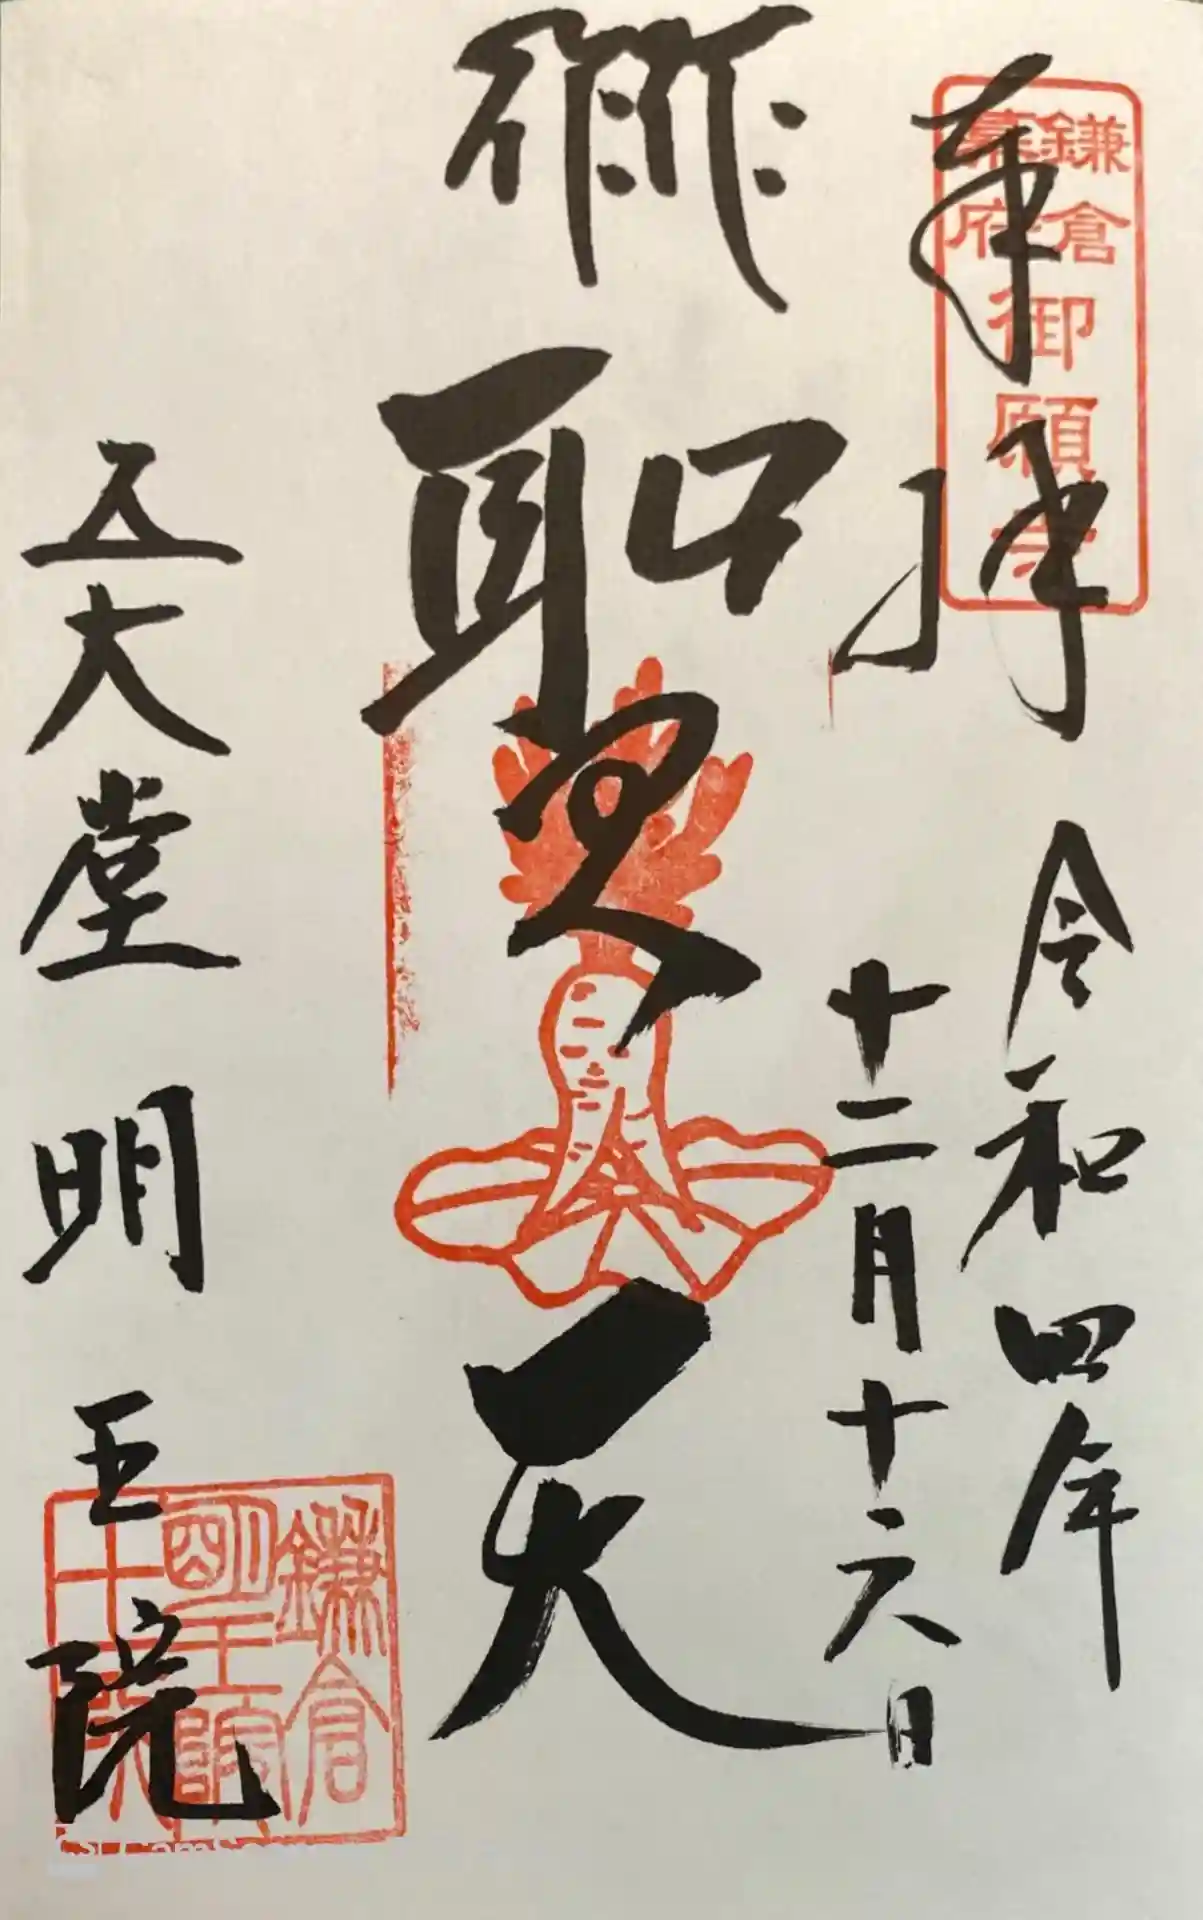 奉拝
令和四年
十二月十六日
聖天
五大堂 明王院
鎌倉
幕府
御願寺
鎌倉
明王院